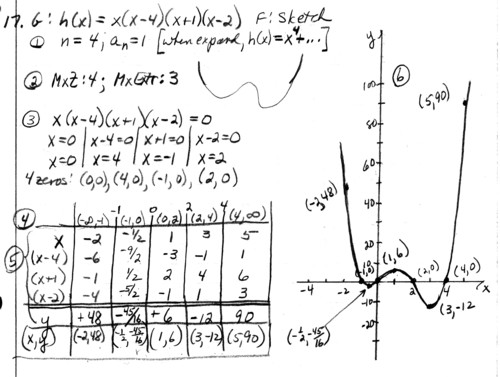 17. G: h(x) = x(x-4)(x+1)(x-2) F: Sketch
① n = 4; aₙ = 1 [when expand, h(x) = x⁴ + ...]
② MxZ: 4; MxExtr: 3
③ x(x-4)(x+1)(x-2) = 0
x=0 | x-4=0 | x+1=0 | x-2=0
x=0 | x=4 | x=-1 | x=2
4 zeros: (0,0), (4,0), (-1,0), (2,0)
-1 0 2 4
④ (-∞,-1) (-1,0) (0,2) (2,4) (4,∞)
x -2 -1/2 1 3 5
⑤ (x-4) -6 -9/2 -3 -1 1
(x+1) -1 1/2 2 4 6
(x-2) -4 -5/2 -1 1 3
y +48 -45/16 +6 -12 90
(x,y) (-2,48) (-1/2,-45/16) (1,6) (3,-12) (5,90)
y
⑥
100
(5,90)
80
60
(-2,48)
40
20
10
(1,6)
(-1,0)
(2,0)
(4,0)
-4 -2
x
(3,-12
-20
(-1/2,-45/16)